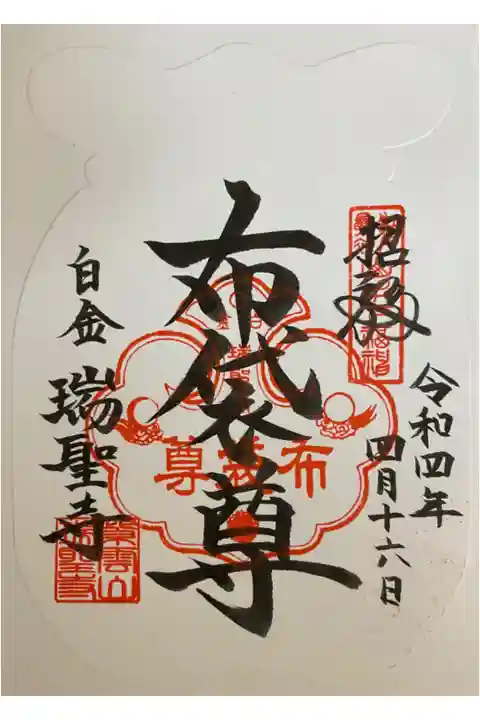 招
令和四年
四月十六日
布袋尊
布袋尊
白金
瑞聖寺
紫雲山
瑞聖寺